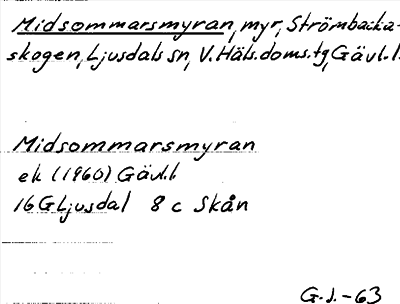 Midsommarsmyran, myr, Strömbacka-
skogen, Ljusdals sn, V. Häls. doms. tg, Gävl. l.
Midsommarsmyran
ek (1960) Gävl. l
16 G Ljusdal 8 c Skån
G. J. -63